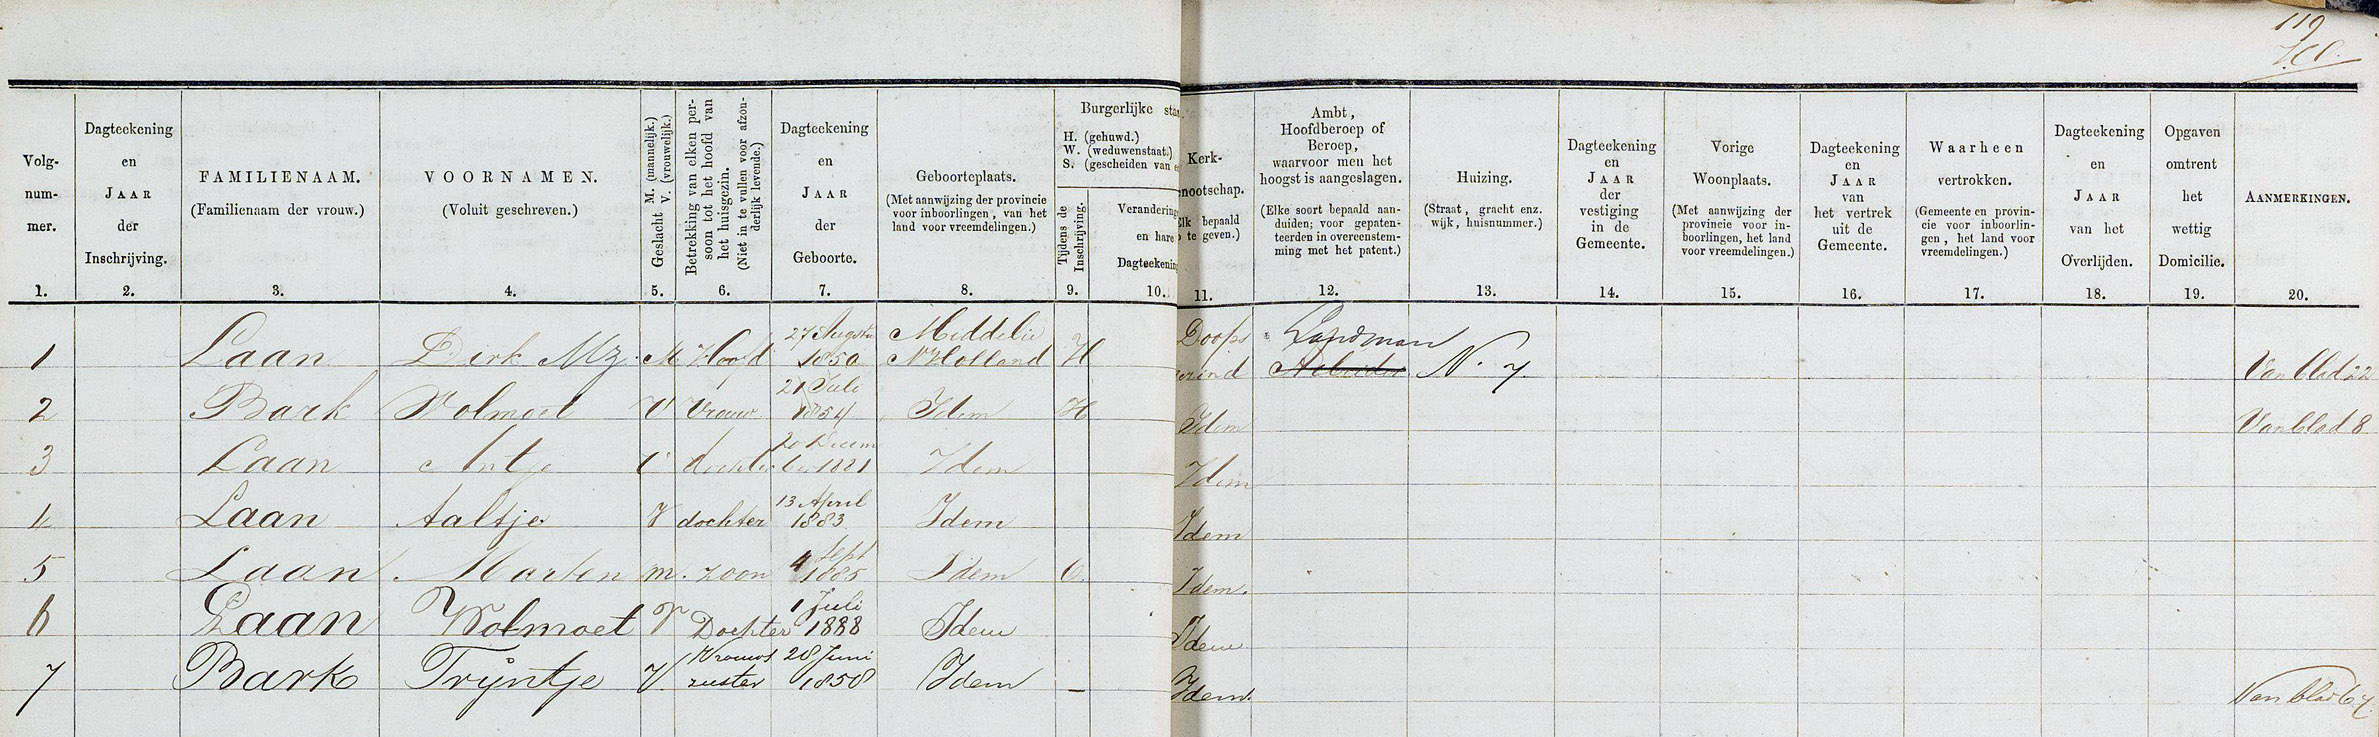 119
Volg-
num-
mer.
1.
Dagteekening
en
JAAR
der
Inschrijving.
2.
FAMILIENAAM.
(Familienaam der vrouw.)
3.
VOORNAMEN.
(Voluit geschreven.)
4.
Geslacht M. (mannelijk.)
V. (vrouwelijk.)
5.
Betrekking van elken per-
soon tot het hoofd van
het huisgezin.
(Niet in te vullen voor afzon-
derlijk levende.)
6.
Dagteekening
en
JAAR
der
Geboorte.
7.
Geboorteplaats.
(Met aanwijzing der provincie
voor inboorlingen, van het
land voor vreemdelingen.)
8.
Burgerlijke sta
H. (gehuwd.)
W. (weduwenstaat.)
S. (gescheiden van e
Tijdens de
Inschrijving.
9.
Verandering
en hare
Dagteekening
10.
Kerk-
nootschap.
Elk bepaald
te geven.)
11.
Ambt,
Hoofdberoep of
Beroep,
waarvoor men het
hoogst is aangeslagen.
(Elke soort bepaald aan-
duiden; voor gepaten-
teerden in overeenstem-
ming met het patent.)
12.
Huizing.
(Straat, gracht enz.
wijk, huisnummer.)
13.
Dagteekening
en
JAAR
der
vestiging
in de
Gemeente.
14.
Vorige
Woonplaats.
(Met aanwijzing der
provincie voor in-
boorlingen, het land
voor vreemdelingen.)
15.
Dagteekening
en
JAAR
van
het vertrek
uit de
Gemeente.
16.
Waarheen
vertrokken.
(Gemeente en provin-
cie voor inboorlin-
gen, het land voor
vreemdelingen.)
17.
Dagteekening
en
JAAR
van het
Overlijden.
18.
Opgaven
omtrent
het
wettig
Domicilie.
19.
AANMERKINGEN.
20.
27 Augustus Middelie Doops Landman
1 Laan Dirk Mz. M Hoofd 1850 N Holland H gezind Arbeider N. 7 Van blad 22
21 Juli
2 Bark Wolmoet V Vrouw 1854 Idem H Idem Van blad 8
20 Decem
3 Laan Antje V dochter ber 1881 Idem Idem
13 April
4 Laan Aaltje V dochter 1883 Idem Idem
Sept
5 Laan Marten m. zoon 4 1885 Idem O. Idem.
1 Juli
6 Laan Wolmoet V Dochter 1888 Idem Idem
Vrouws 28 Juni
7 Bark Trijntje V zuster 1858 Idem – Idem. Van blad 67